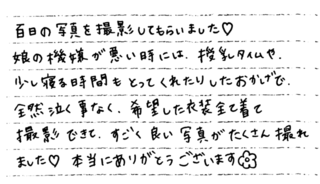 百日の写真を撮影してもらいました♡
娘の機嫌が悪い時には、授乳タイムや、
少し寝る時間もとってくれたりしたおかげで、
全然泣く事なく、希望した衣装全て着て
撮影できて、すごく良い写真がたくさん撮れ
ました♡ 本当にありがとうございます